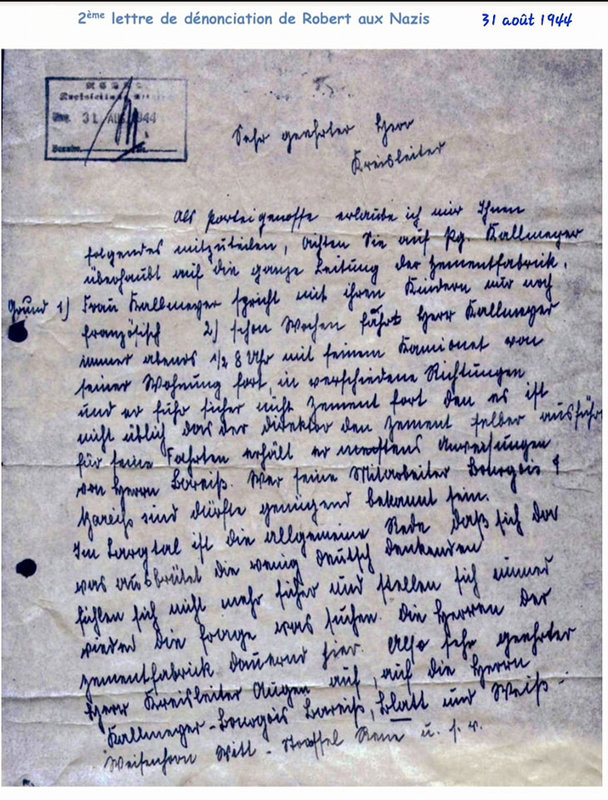 2ème lettre de dénonciation de Robert aux Nazis 31 août 1944
31 AUG. 1944
Sehr geehrter Herr
Kreisleiter
Als Parteigenosse erlaube ich mir Ihnen
folgendes mitzuteilen, achten Sie auf Pg. Kallmeyer
überhaubt auf die ganze Leitung der Zementfabrik.
Grund 1) Frau Kallmeyer spricht mit ihren Kindern nur noch
französisch 2) schon Wochen fährt Herr Kallmeyer
immer abends 1/2 8 Uhr mit seinem Kamionet von
seiner Wohnung fort in verschiedene Richtungen
und er führ sicher nicht Zement fort den es ist
nicht üblich das der Direktor den Zement selber ausführ
für seine Fahrten erhält er Anweisungen
von Herrn Bareiß. Wer seine Mitarbeiter Bourgois &
Bareiss sind dürfte genügend bekannt sein.
Im Largtal ist die allgemeine Rede daß sich dar
was ausbrütet die wenig deutsch denkenden
fühlen sich nicht mehr sicher und stellen sich immer
wieder die Frage was suchen die Herren der
Zementfabrik dauernd hier. Also sehr geehrter
Herr Kreisleiter Augen auf, auf die Herrn
Kallmeyer-Bourgois Bareiß, Blatt und Weiß-
Weisenhorn Witt - Stoffel Rene u. s. w.